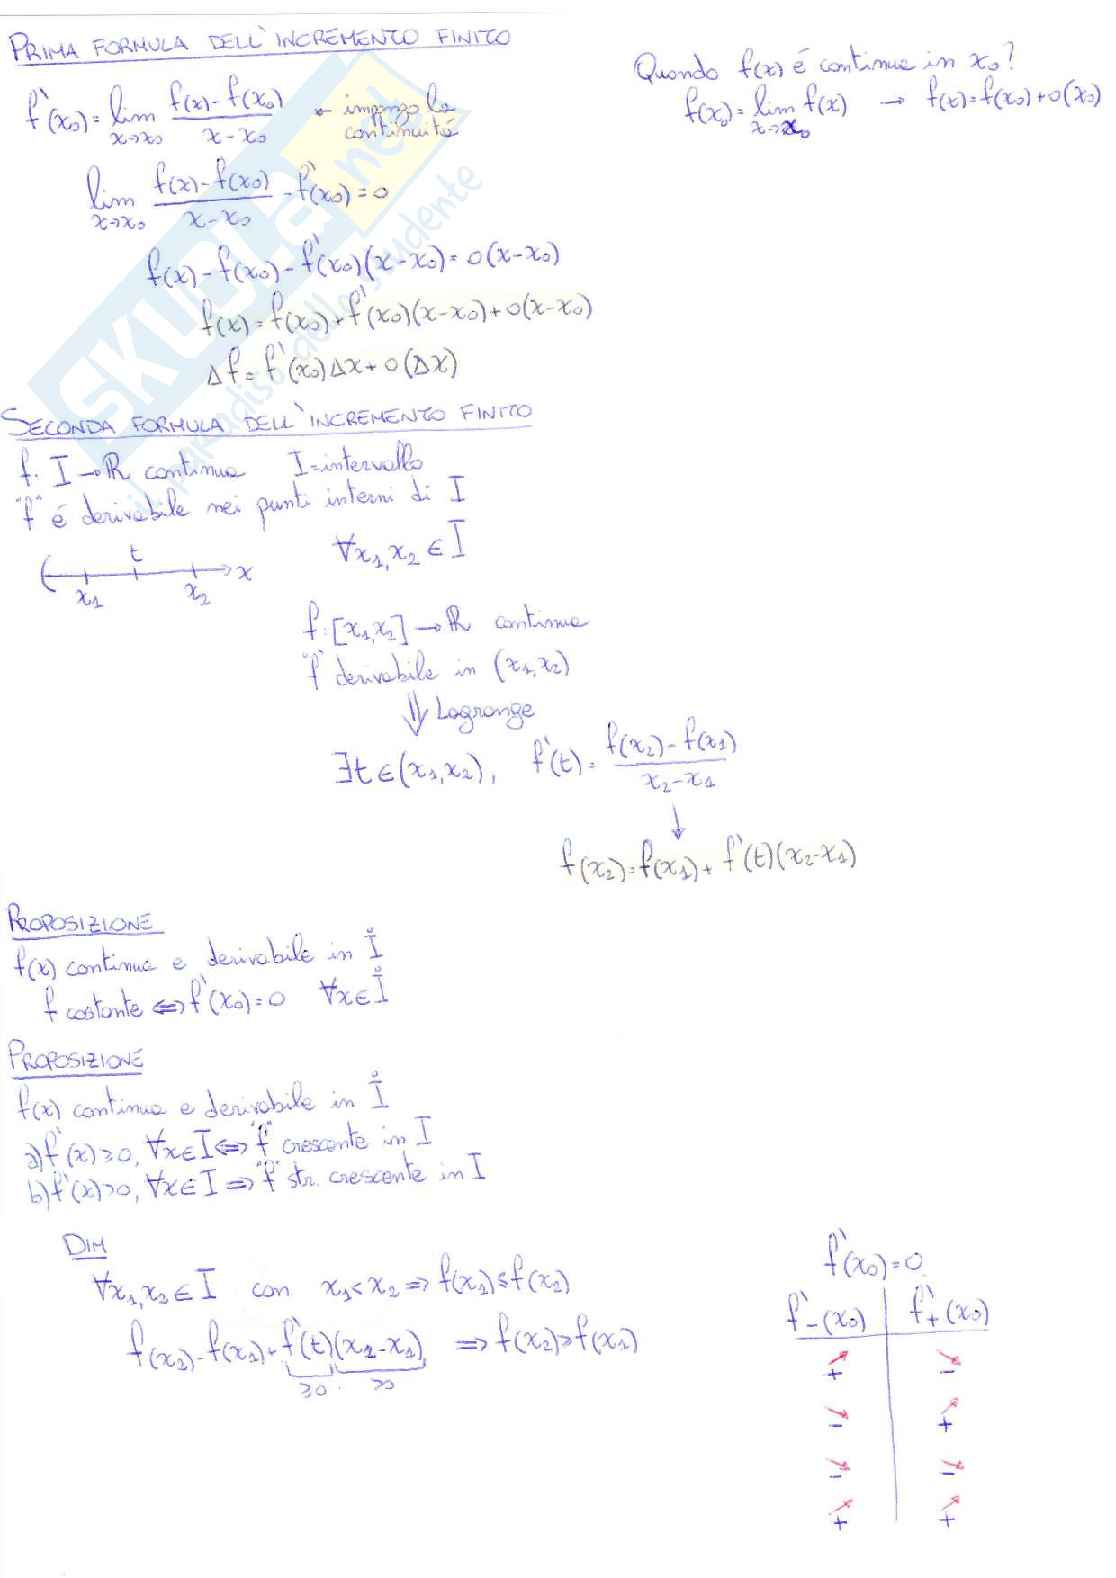 PRIMA FORMULA DELL'INCREMENTO FINITO
f'(x₀) = lim x→x₀ (f(x) - f(x₀))/(x - x₀) ← impongo la continuità
Quando f(x) é continua in x₀?
f(x₀) = lim x→x₀ f(x) → f(x) = f(x₀) + o(x₀)
lim x→x₀ (f(x) - f(x₀))/(x - x₀) - f'(x₀) = 0
f(x) - f(x₀) - f'(x₀)(x - x₀) = o(x - x₀)
f(x) = f(x₀) + f'(x₀)(x - x₀) + o(x - x₀)
Δf = f'(x₀)Δx + o(Δx)
SKUOLA.net
il paradiso dello studente
SECONDA FORMULA DELL'INCREMENTO FINITO
f: I → ℝ continua I = intervallo
"f" é derivabile nei punti interni di I
t
x
x₁ x₂
∀x₁, x₂ ∈ I
f: [x₁, x₂] → ℝ continua
"f" derivabile in (x₁, x₂)
⇓ Lagrange
∃t ∈ (x₁, x₂), f'(t) = (f(x₂) - f(x₁))/(x₂ - x₁)
↓
f(x₂) = f(x₁) + f'(t)(x₂ - x₁)
PROPOSIZIONE
f(x) continua e derivabile in I̊
f costante ⇔ f'(x₀) = 0 ∀x ∈ I̊
PROPOSIZIONE
f(x) continua e derivabile in I̊
a) f'(x) ≥ 0, ∀x ∈ I ⇔ "f" crescente in I
b) f'(x) > 0, ∀x ∈ I ⇒ "f" str. crescente in I
DIM
∀x₁, x₂ ∈ I con x₁ < x₂ ⇒ f(x₁) ≤ f(x₂)
f(x₂) = f(x₁) + f'(t)(x₂ - x₁) ⇒ f(x₂) ≥ f(x₁)
≥0 · >0
f'(x₀) = 0
f'₋(x₀) f'₊(x₀)
+ -
- +
- -
+ +